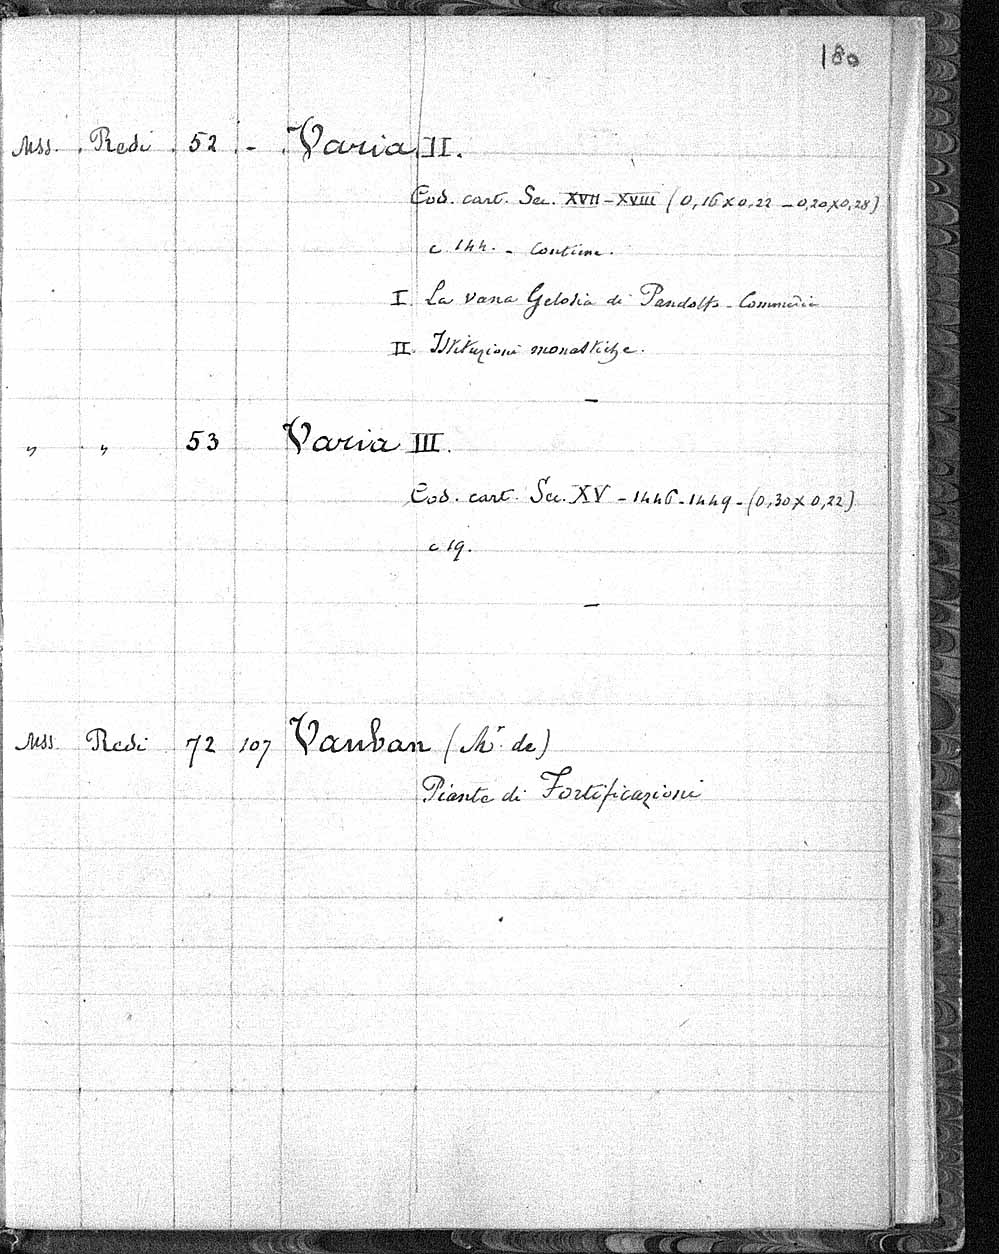 180
Mss. Redi 52 - Varia II.
Cod. cart. Sec. XVII-XVIII (0,16 x 0,22 - 0,20 x 0,28)
c 144. - Contiene.
I. La vana Gelosia di Pandolfo - Commedia
II. Istituzioni monastiche.
-
" " 53 Varia III.
Cod. cart. Sec. XV - 1446-1449 - (0,30 x 0,22)
c 19.
-
Mss. Redi 72 107 Vauban (Mr. de)
Piante di Fortificazioni